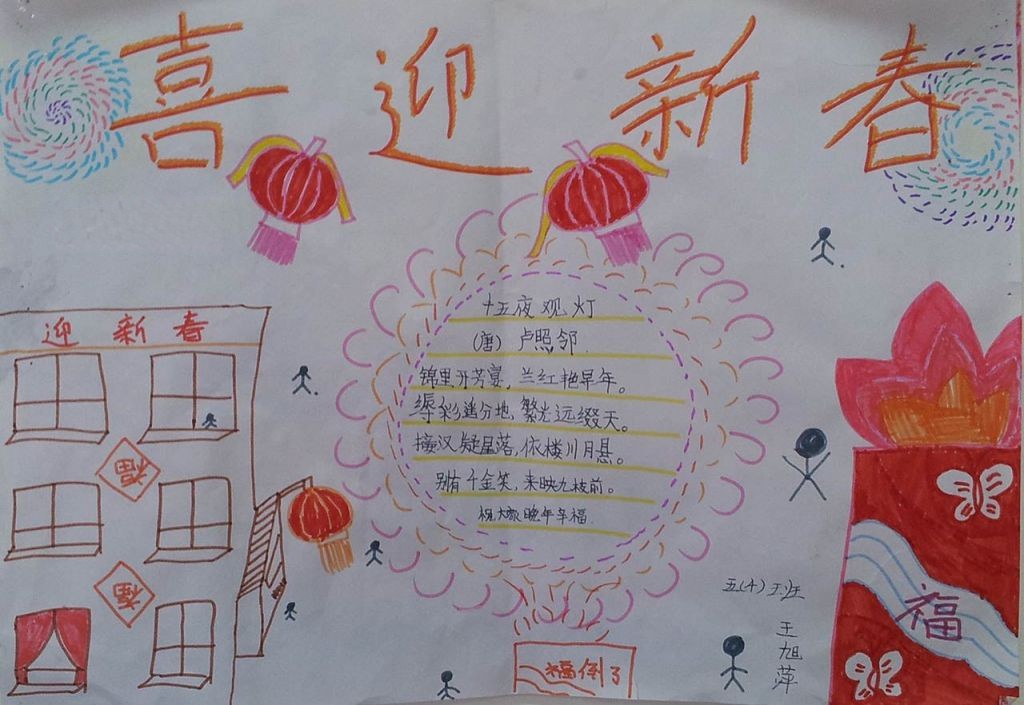 喜迎新春
十五夜观灯
(唐) 卢照邻
锦里开芳宴，兰红艳早年。
缛彩遥分地，繁光远缀天。
接汉疑星落，依楼似月悬。
别有千金笑，来映九枝前。
祝大家晚年幸福
迎新春
福
福
福
福倒了
五(4)班
王旭萍